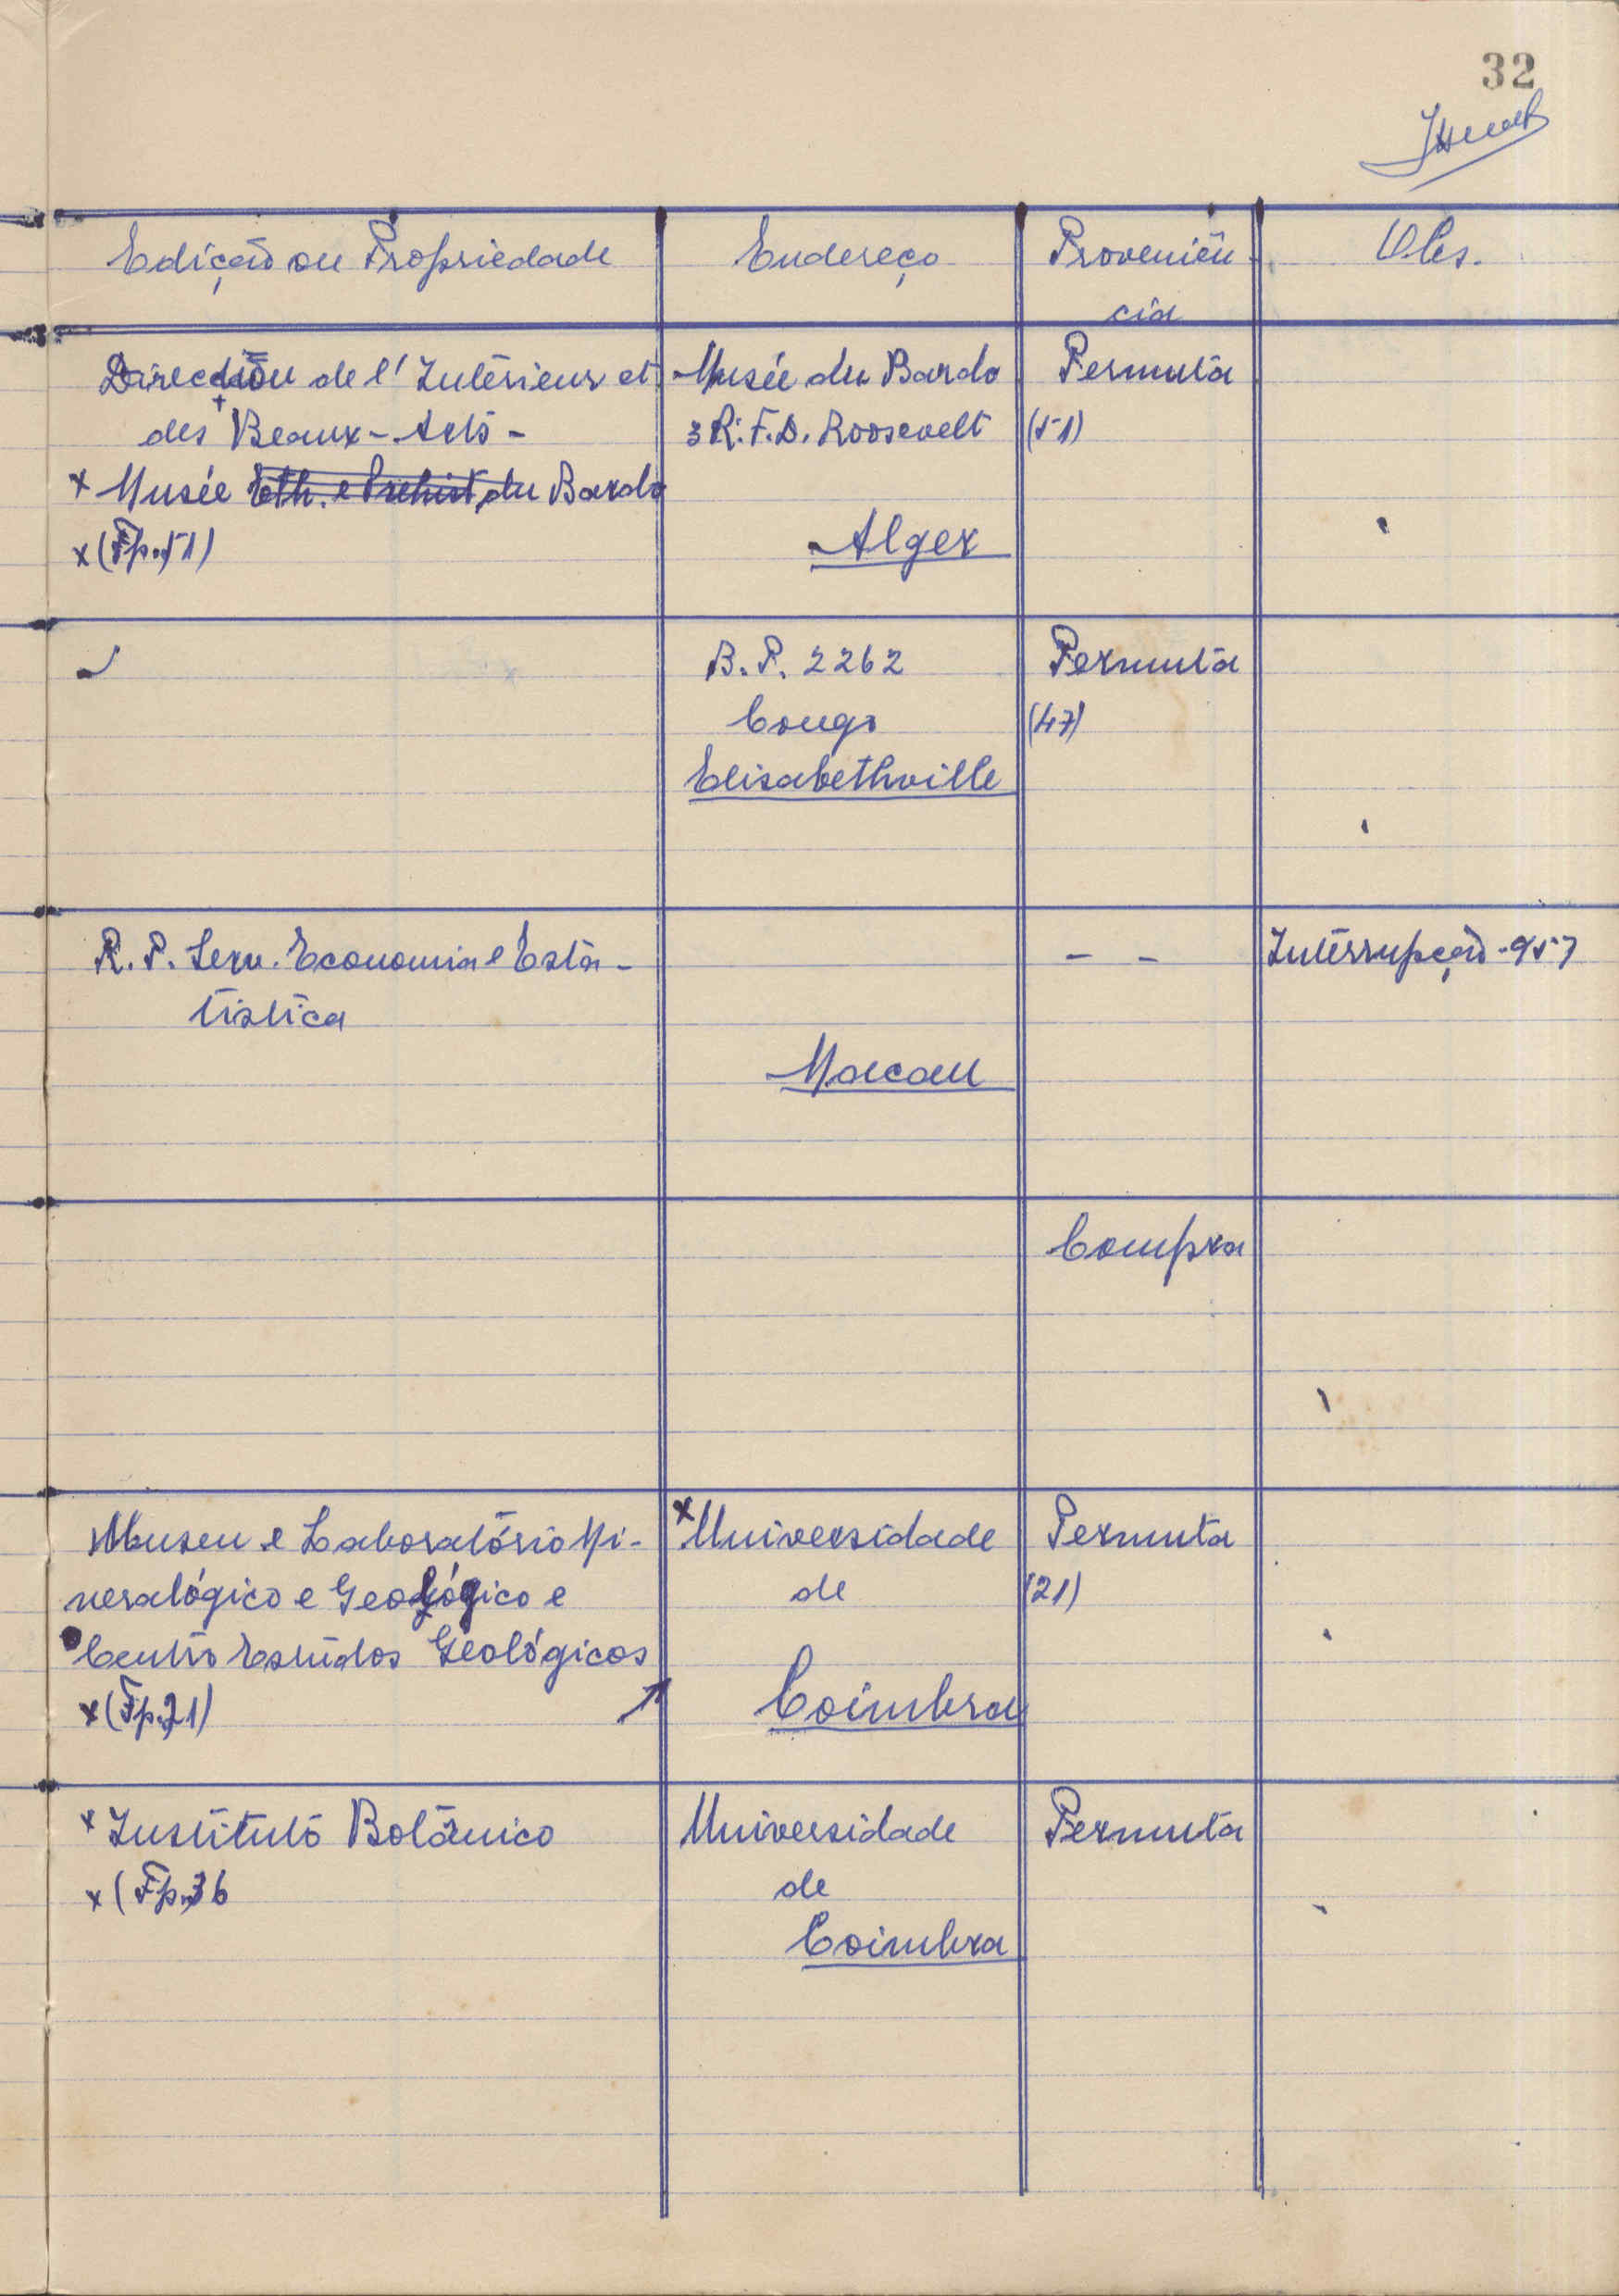 32
Edição ou Propriedade
Endereço
Proveniên
cia
Obs.
Direction de l'Intérieur et
des Beaux-Arts -
x Musée Eth. e Prehist. du Bardo
x (Fp. 51)
Musée du Bardo
3 R. F. D. Roosevelt
Alger
Permuta
(51)
B. P. 2262
Congo
Elisabethville
Permuta
(47)
R. P. Serv. Economia e Esta-
tistica
Macau
- -
Interrupção - 957
Compra
Museu e Laboratório Mi-
neralógico e Geológico e
Centro Estudos Geológicos
x (Fp. 21)
x Universidade
de
Coimbra
Permuta
(21)
x Instituto Botânico
x (Fp. 36
Universidade
de
Coimbra
Permuta